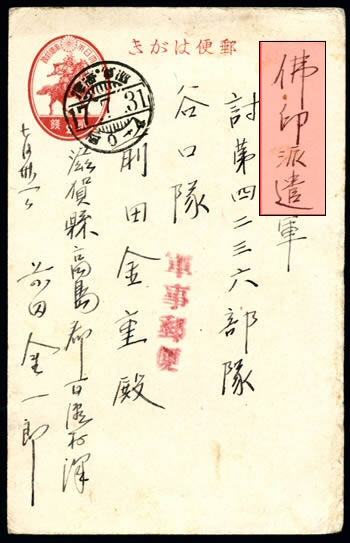 郵便はがき
佛印派遣軍
討第四二三六部隊
谷口隊
前田金重殿
軍事郵便
滋賀縣高島郡
前田金一郎
17.7.31